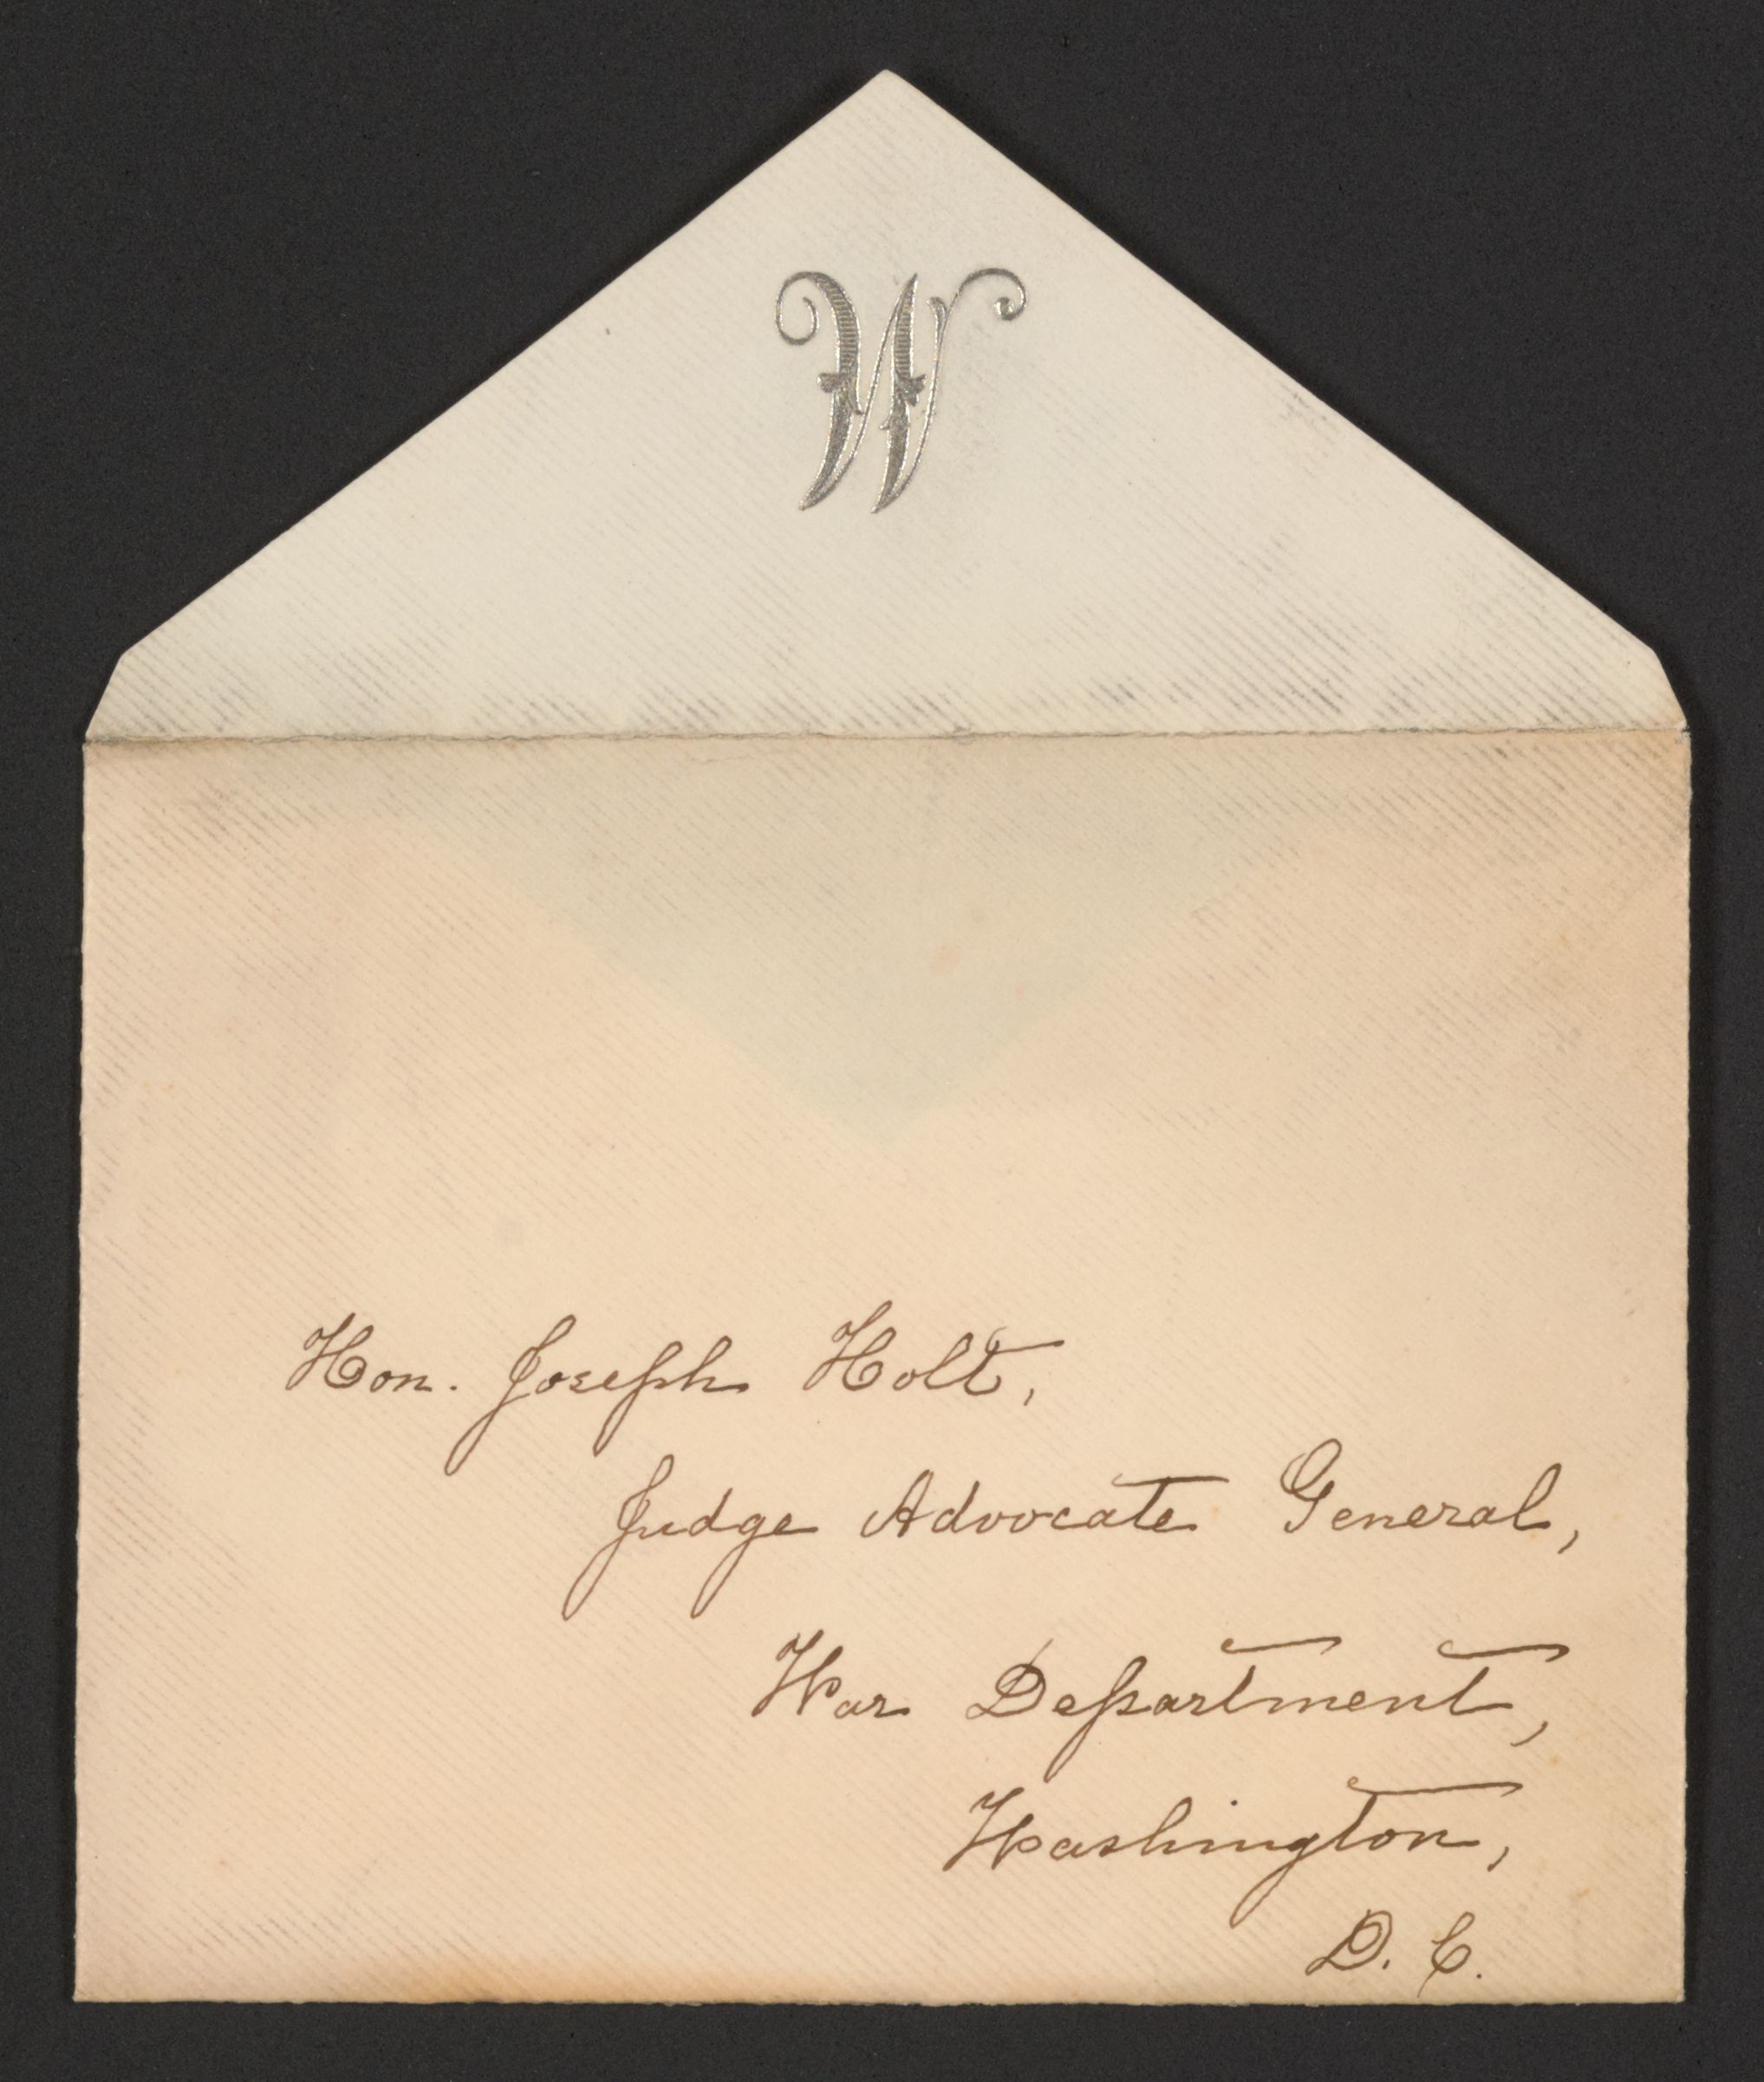 W
Hon. Joseph Holt,
Judge Advocate General,
War Department,
Washington,
D. C.